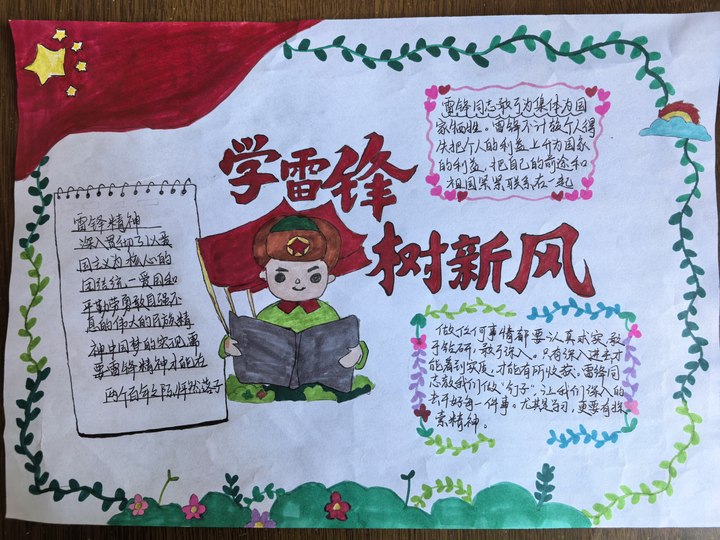 学雷锋
树新风
雷锋同志敢于为集体为国
家牺牲。雷锋不计较个人得
失把个人的利益上升为国家
的利益,把自己的前途和
祖国紧紧联系在一起
雷锋精神
深入
国主义为核心的
团结统一爱国和
平勤劳勇敢自强不
息的伟大的民族精
神中国梦的实现需
要雷锋精神才能在
两个百年
做任何事情都要认真求实,敢
于钻研,敢于深入。只有深入进去才
能看到实质,才能有所收获。雷锋同
志教我们做“钉子”,让我们深入的
去干好每一件事。尤其是学习,更要有探
索精神。